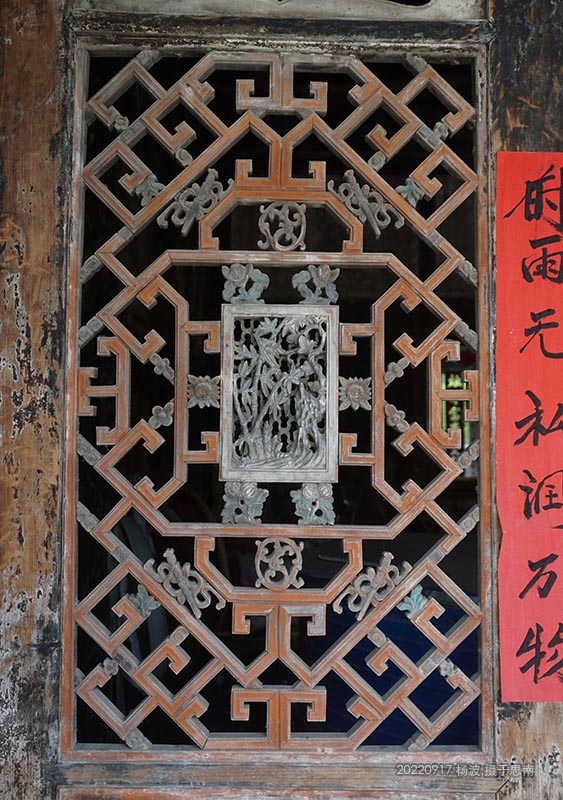 时雨无私润万物
20220917 杨波 摄于思南